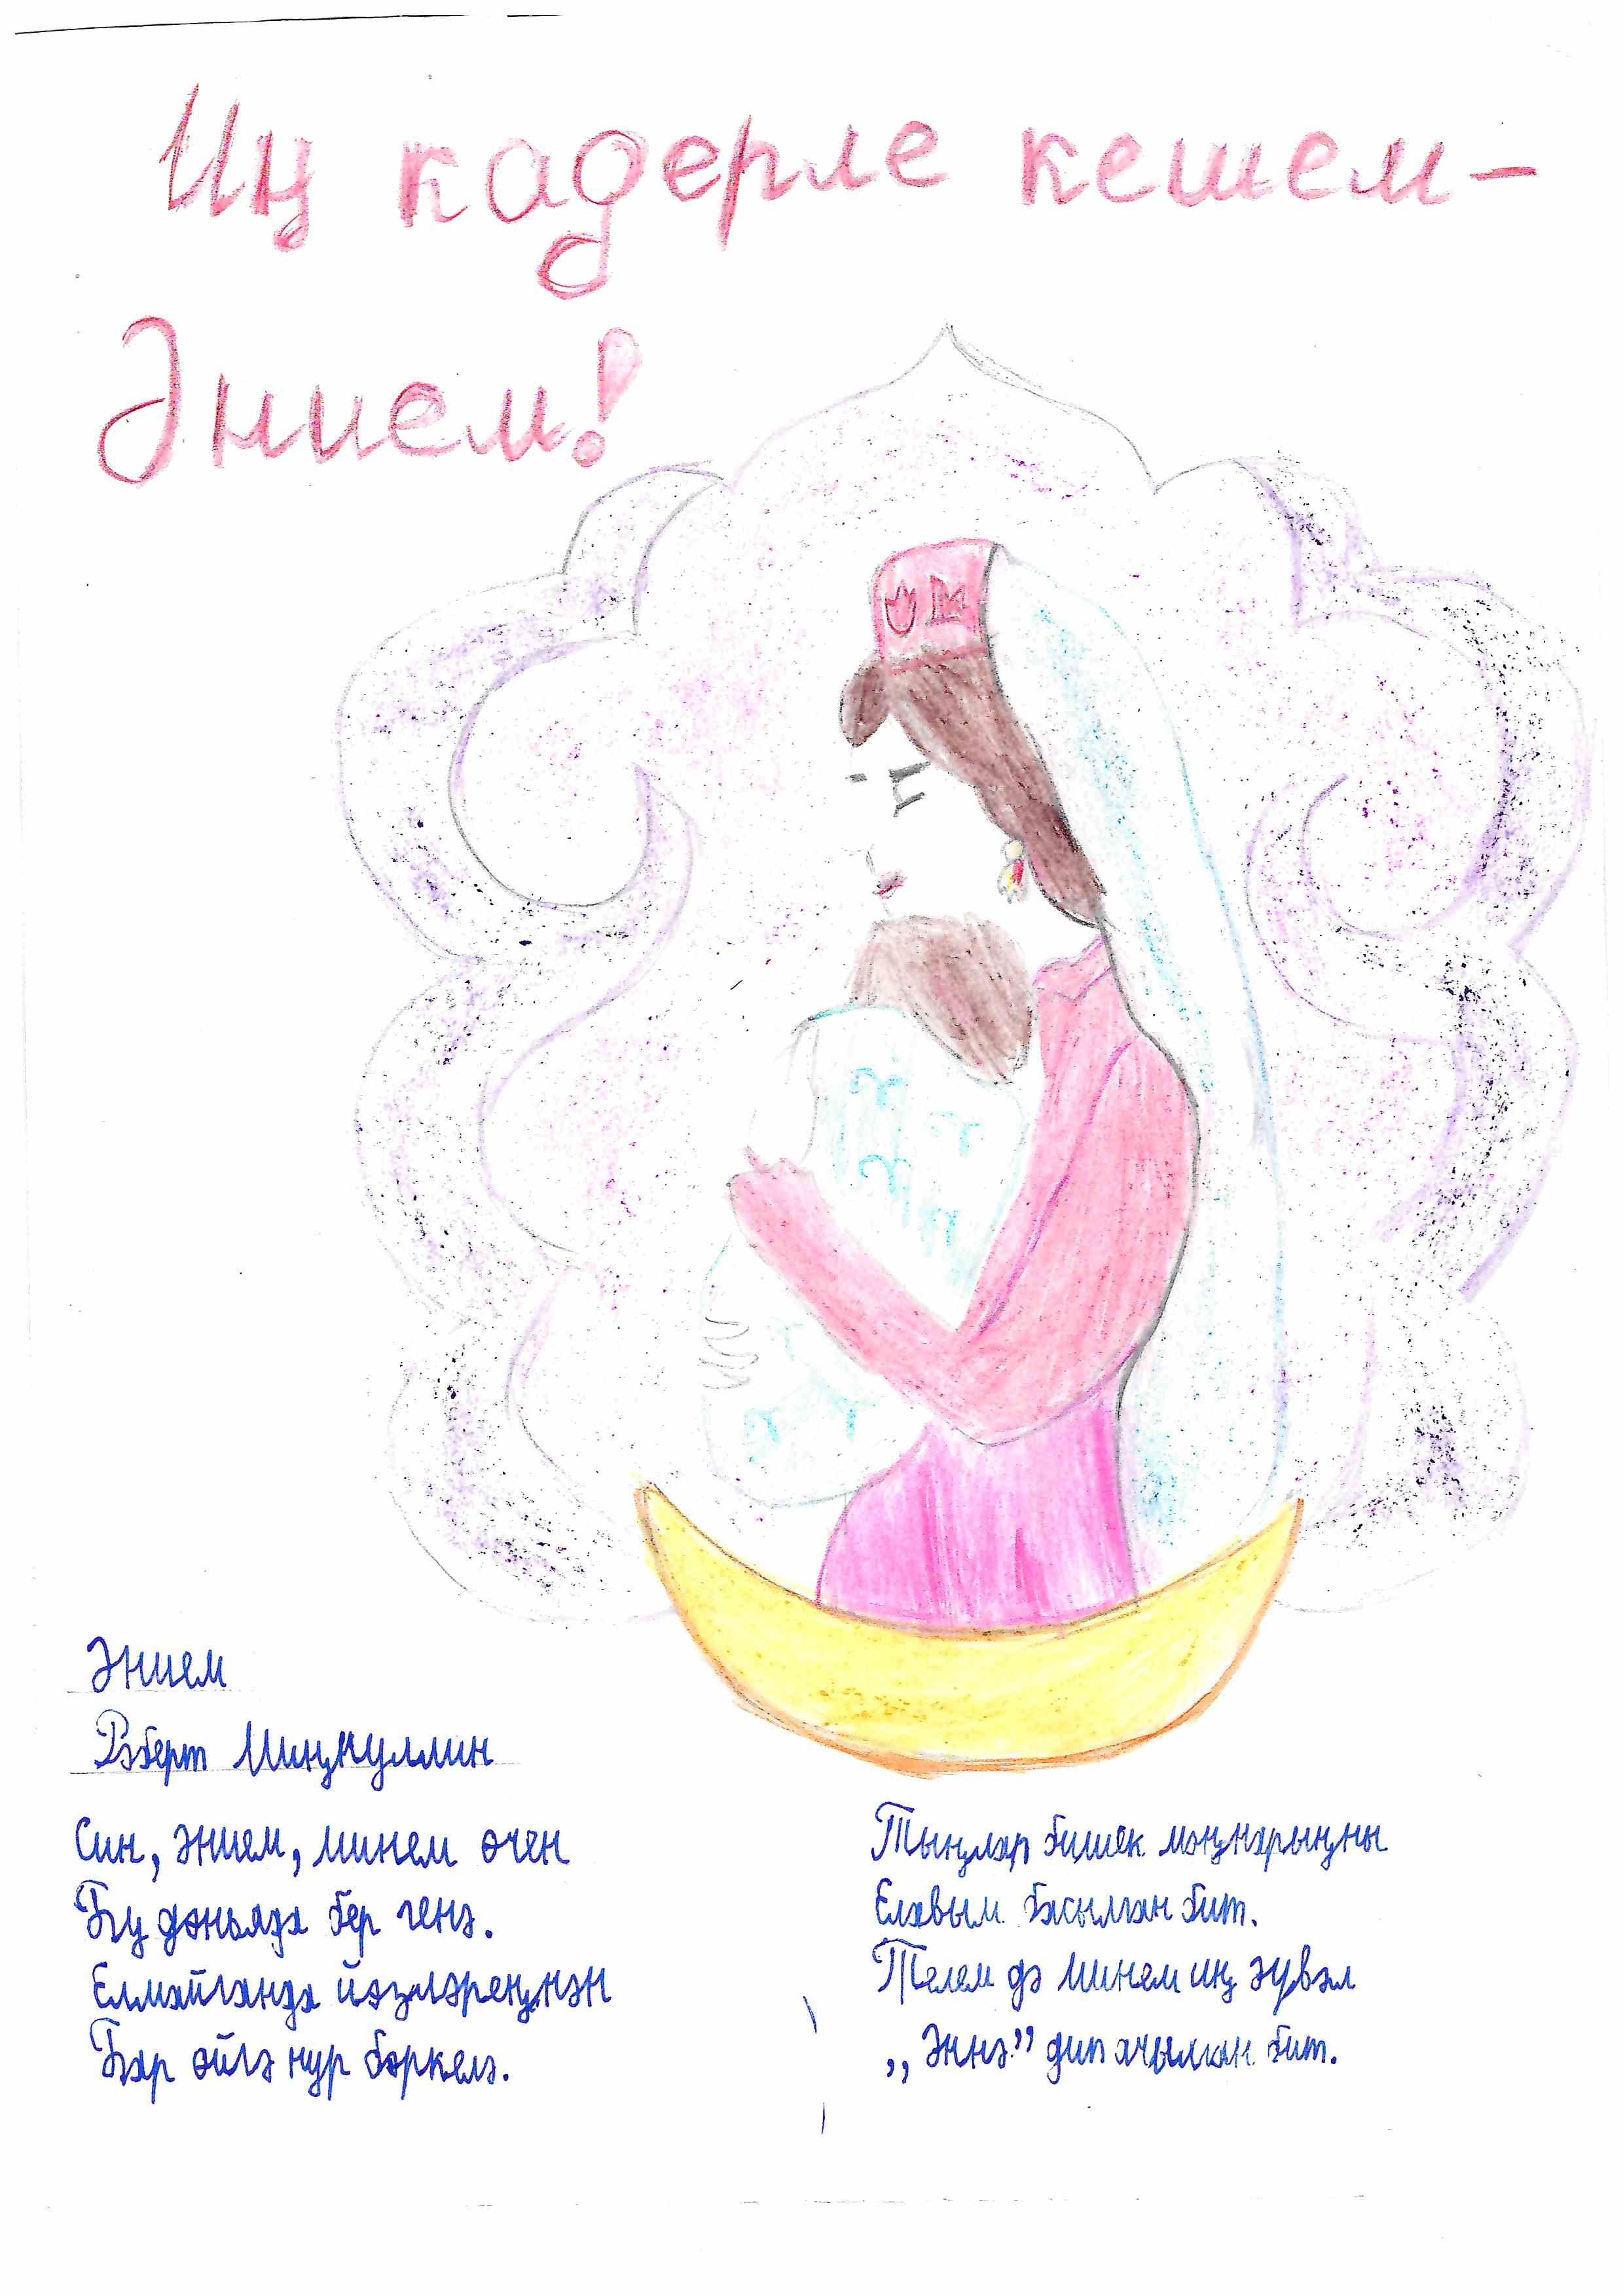 Иң кадерле кешем–
Әнием!
Әнием
Роберт Миңнуллин
Син, әнием, минем өчен
Бу дөньяда бер генә.
Елмайганда йөзләреңнән
Бар өйгә нур бөркелә.
Тыңлап бишек моңнарыңны
Елавым басылган бит.
Телем дә минем иң әүвәл
„Әннә” дип ачылган бит.